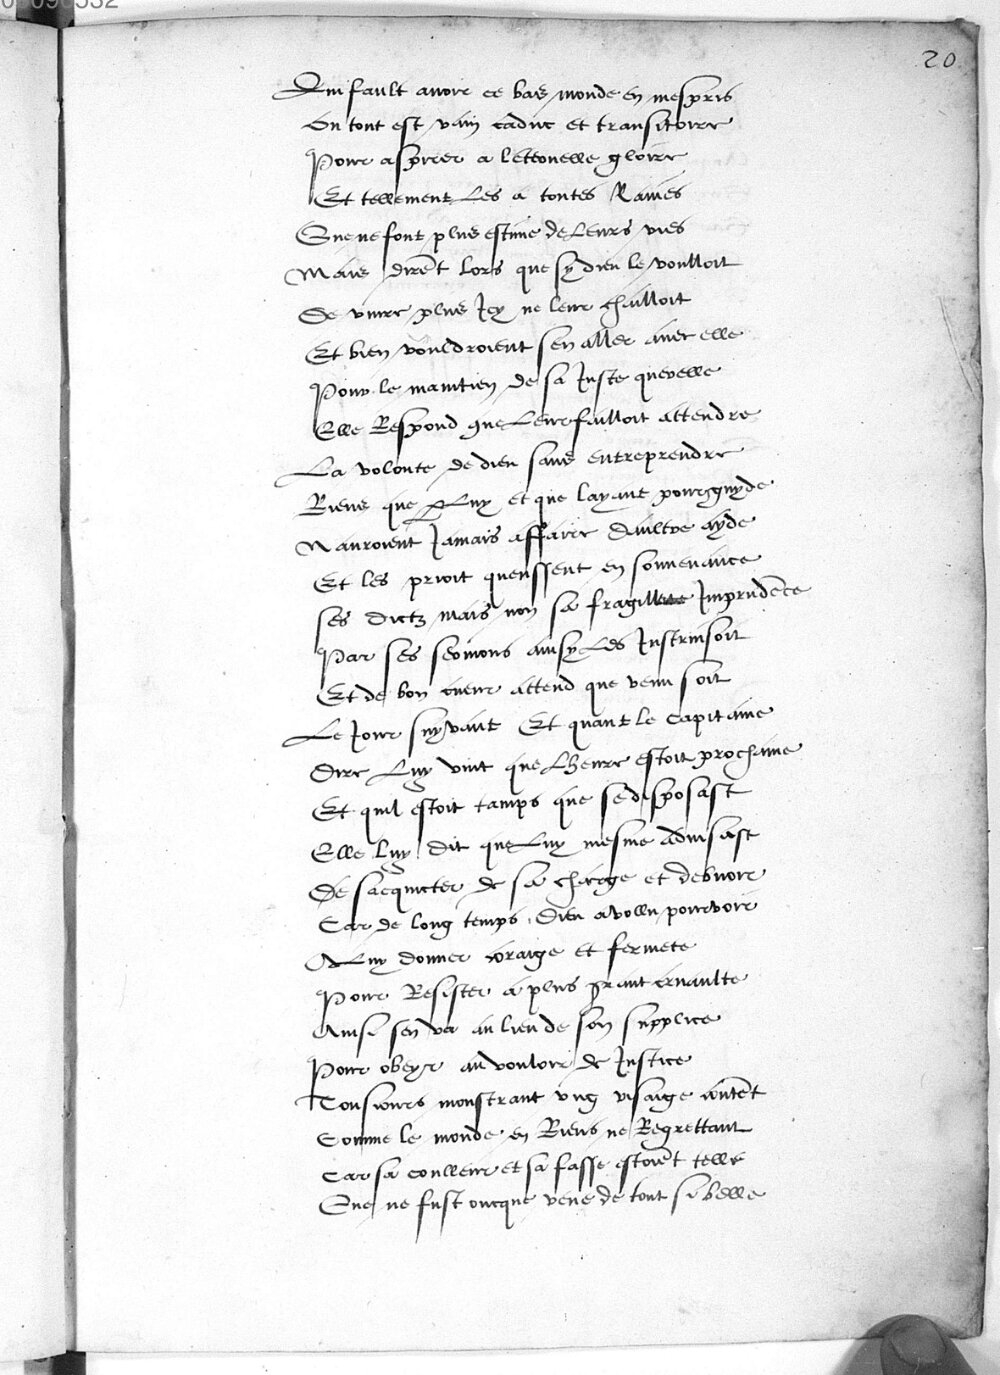 20
Quil fault avoir ce bas monde en mespris
Ou tout est vain caduc et transitoire
Pour aspirer a leternelle gloire
Et tellement les a toutes
Que ne font plus estime de leurs vies
Mais dirent lors que sy dieu le voulloit
De vivre plus Icy ne leur chailloit
Et bien vouldroient sen aller avec elle
Pour le maintien de sa Juste querelle
Elle Respond que leur failloit attendre
La volonte de dieu sans entreprendre
Riens que par luy et que layant pour guyde
Nauroient Jamais affaire daultre ayde
Et les prioit queussent en souvenance
Ses dictz mais non sa Imprudence
Par ses sermons ainsy les Instruisoit
Et de bon cueur attend que venu soit
Le Jour suyvant Et quant le capitaine
Dire luy vint que lheure estoit prochaine
Et quil estoit tamps que se disposast
Elle luy dit que luy mesme advisast
De sacquicter de sa charge et debvoir
Car de long temps Dieu a vollu pourvoir
A luy donner coraige et fermete
Pour Resister a plus grant cruaulte
Ainsi sen va au lieu de son supplice
Pour obeyr au vouloir de Justice
Tousiours monstrant ung visaige content
Comme le monde en Riens ne Regrettant
Car sa coulleur et sa fasse estoient telle
Que ne fust oncque veue de tout si belle